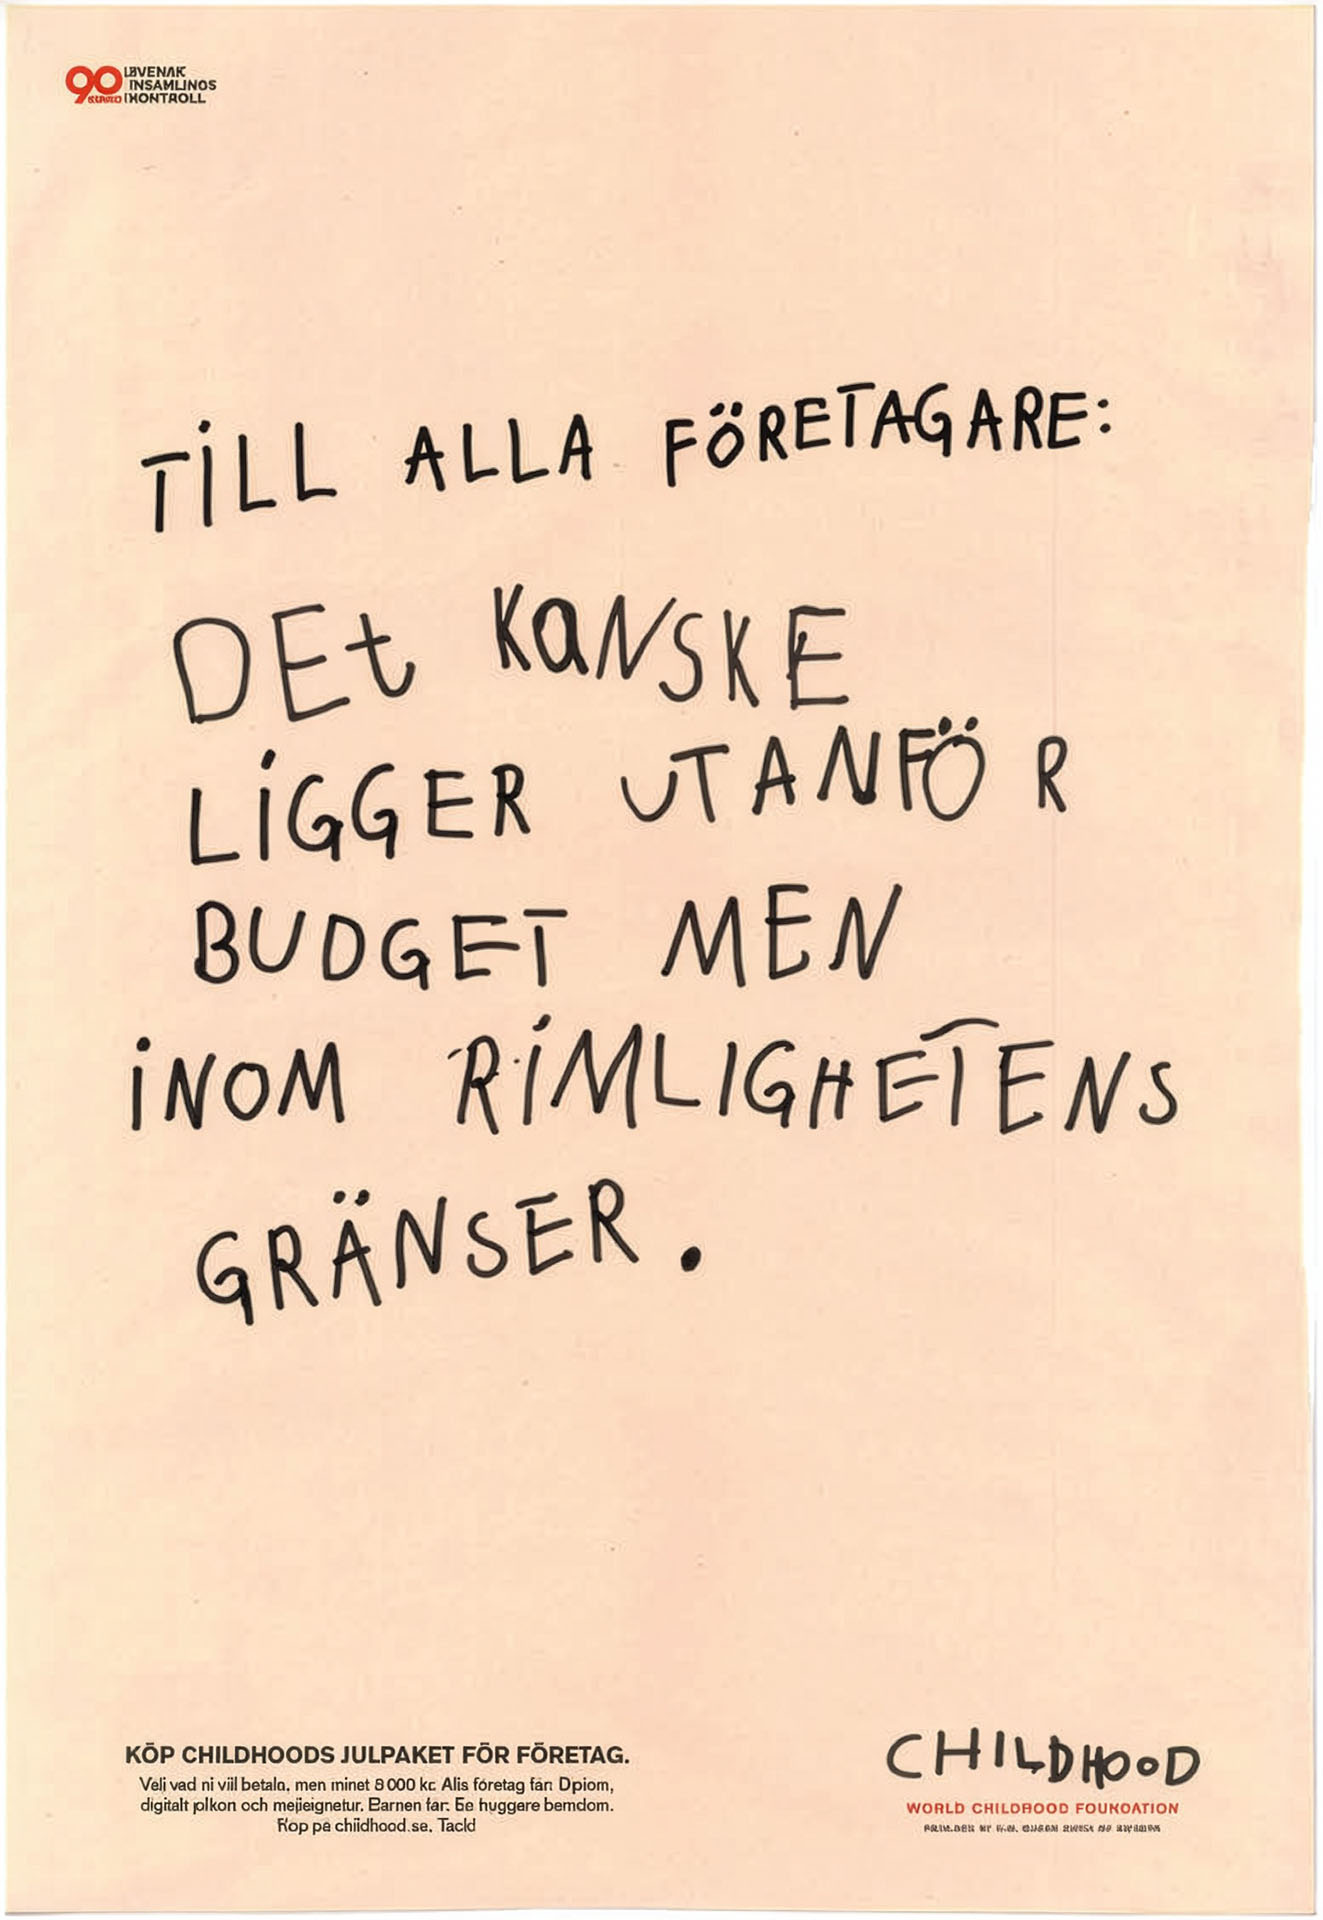 90
INSAMLINOS
TILL ALLA FÖRETAGARE:
DEt KaNSKE
LIGGER UTANFÖR
BUDGET MEN
INOM RIMLIGHETENS
GRÄNSER.
KÖP CHILDHOODS JULPAKET FÖR FÖRETAG.
Velj vad ni viil betala, men minet 8 000 kr. Alis företag får: Dpiom,
digitalt julkon och mejleignetur. Barnen får: Ee huggare bemdom.
Köp på chiidhood.se. Tackl
CHILDHOOD
WORLD CHILDROOD FOUNDATION